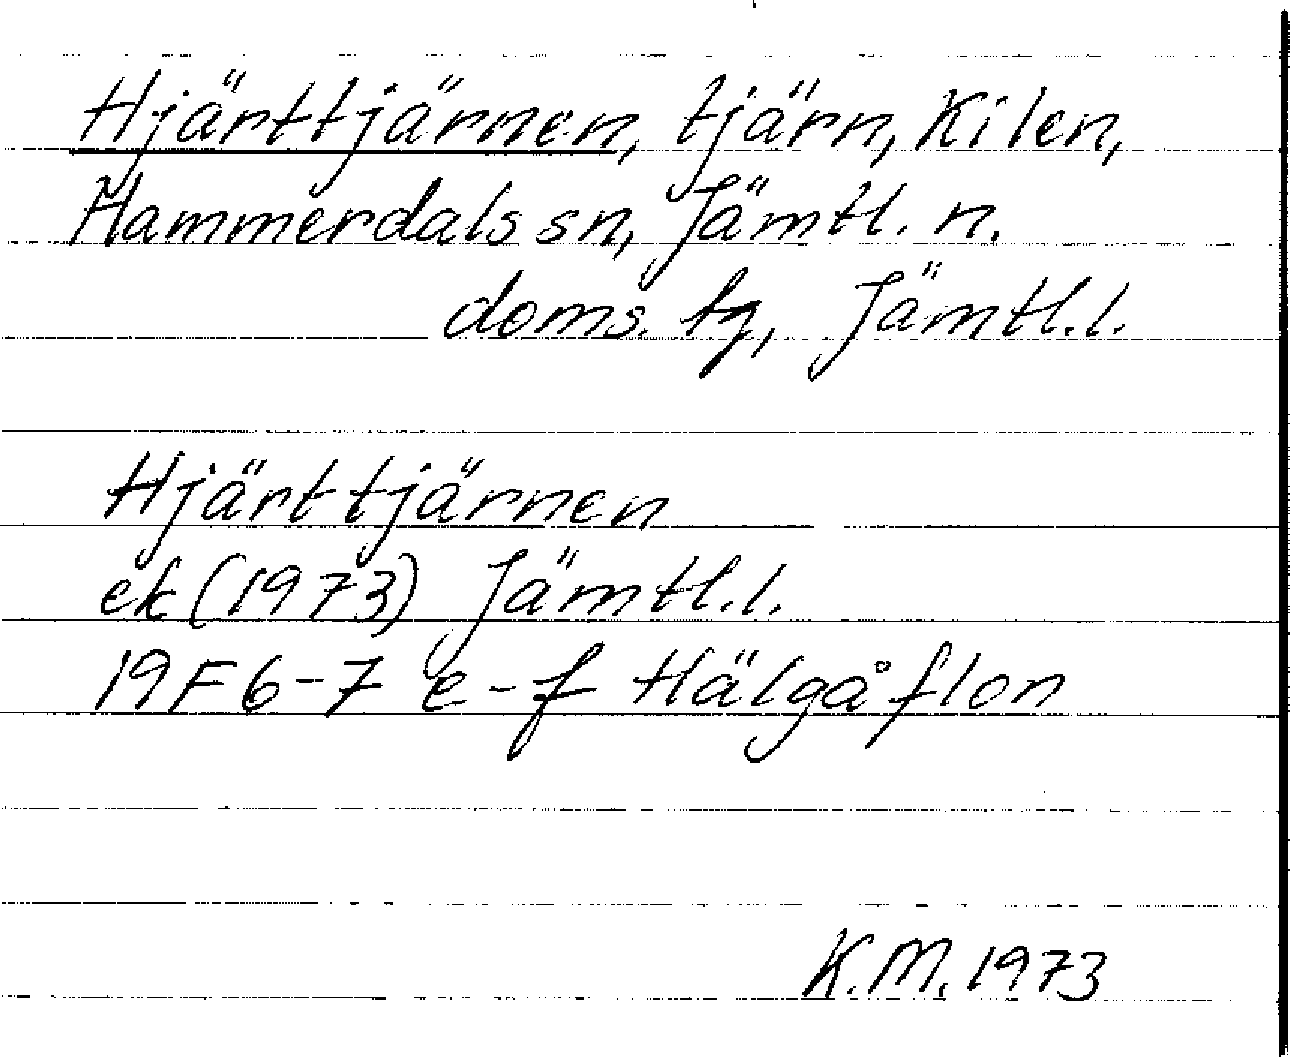 Hjärttjärnen, tjärn, Kilen,
Hammerdals sn, Jämtl. n.
doms. tg, Jämtl.l.
Hjärttjärnen
ek (1973) Jämtl.l.
19F 6-7 e-f Hälgåflon
K.M. 1973